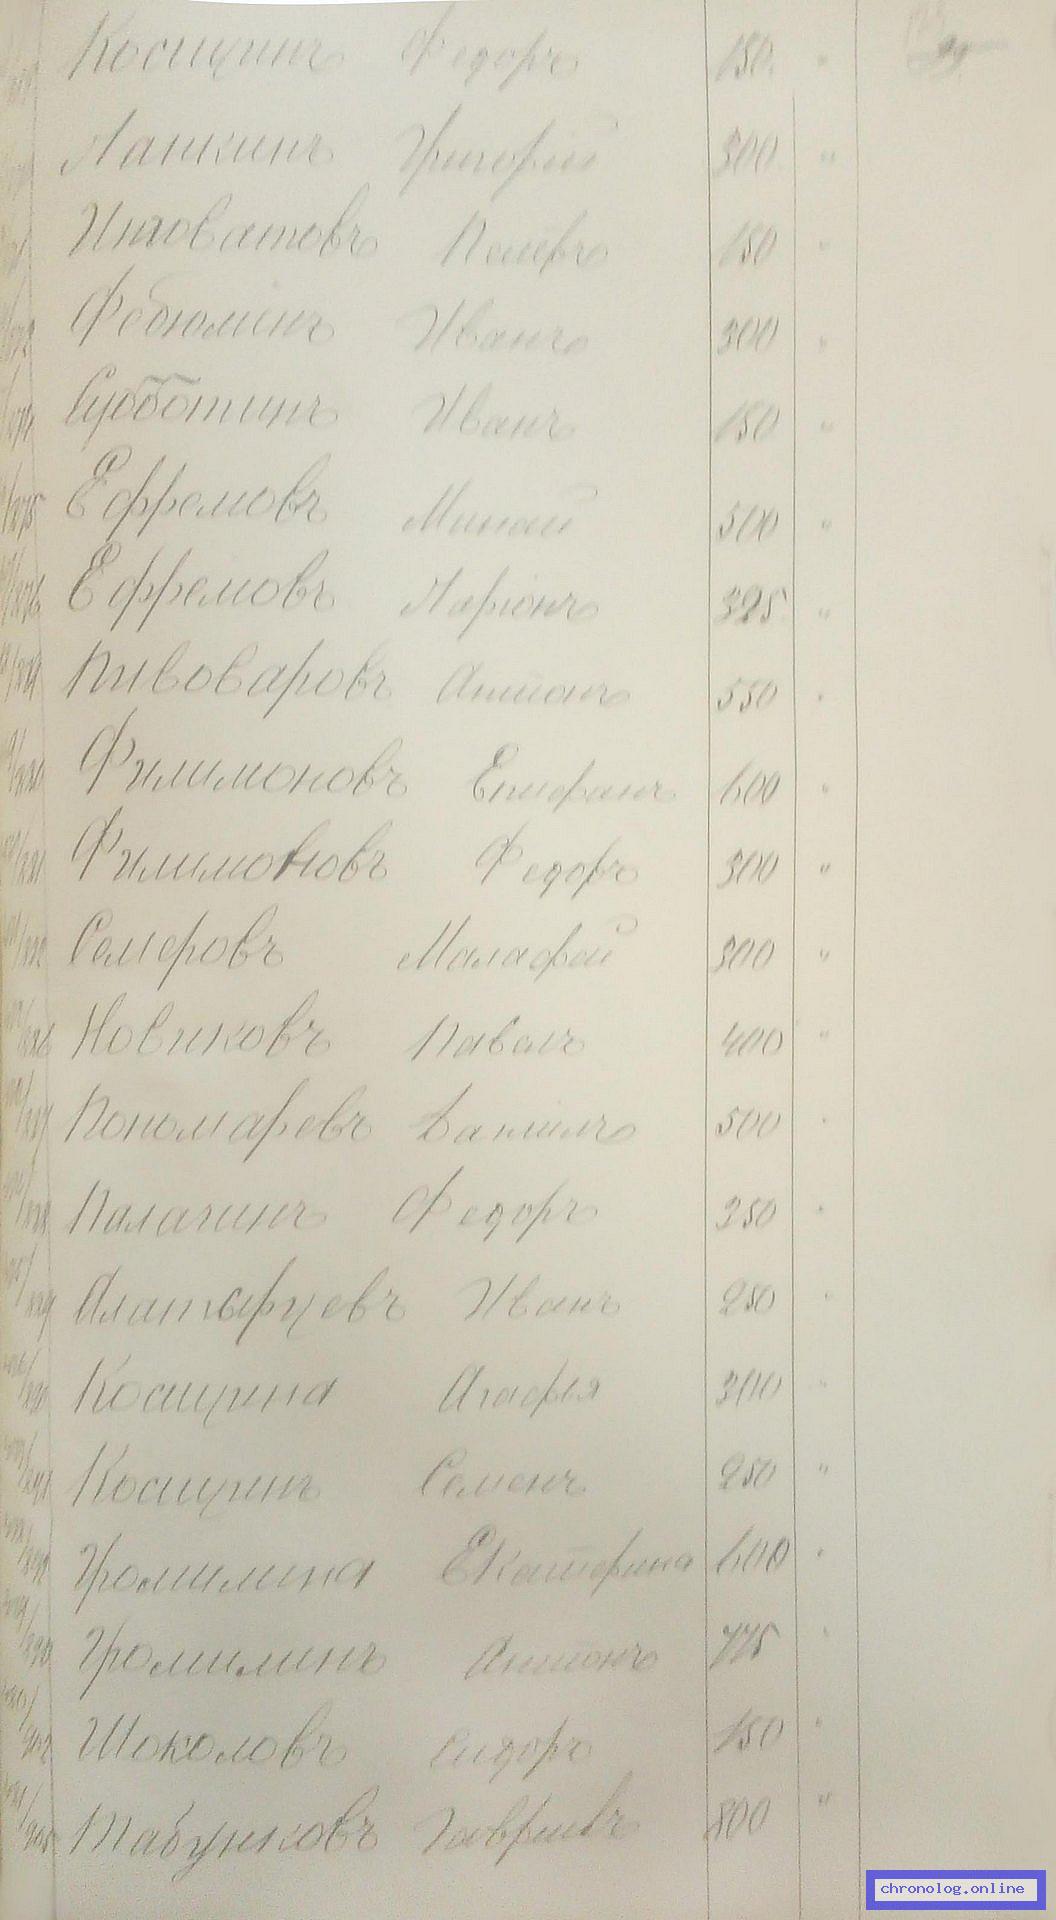 Косицинъ Федоръ 150 "
Лапкинъ Григорий 300 "
Ипповатовъ 150 "
Федюминъ Иванъ 300 "
Субботинъ Иванъ 150 "
Ефремовъ Минай 500 "
Ефремовъ Ларіонъ 325 "
Пивоваровъ Антонъ 550 "
Филимоновъ Епифанъ 600 "
Филимоновъ Федоръ 300 "
Семеровъ Малафей 300 "
Новиковъ Павелъ 400 "
Пономаревъ Данилъ 500 "
Палагинъ Федоръ 350 "
Алатырцевъ Иванъ 250 "
Косицина Агафья 300 "
Косицинъ Семенъ 250 "
Громилина Екатерина 600 "
Громилинъ Антонъ 775 "
Шоколовъ Сидоръ 150 "
Табунковъ 800 "
chronolog.online